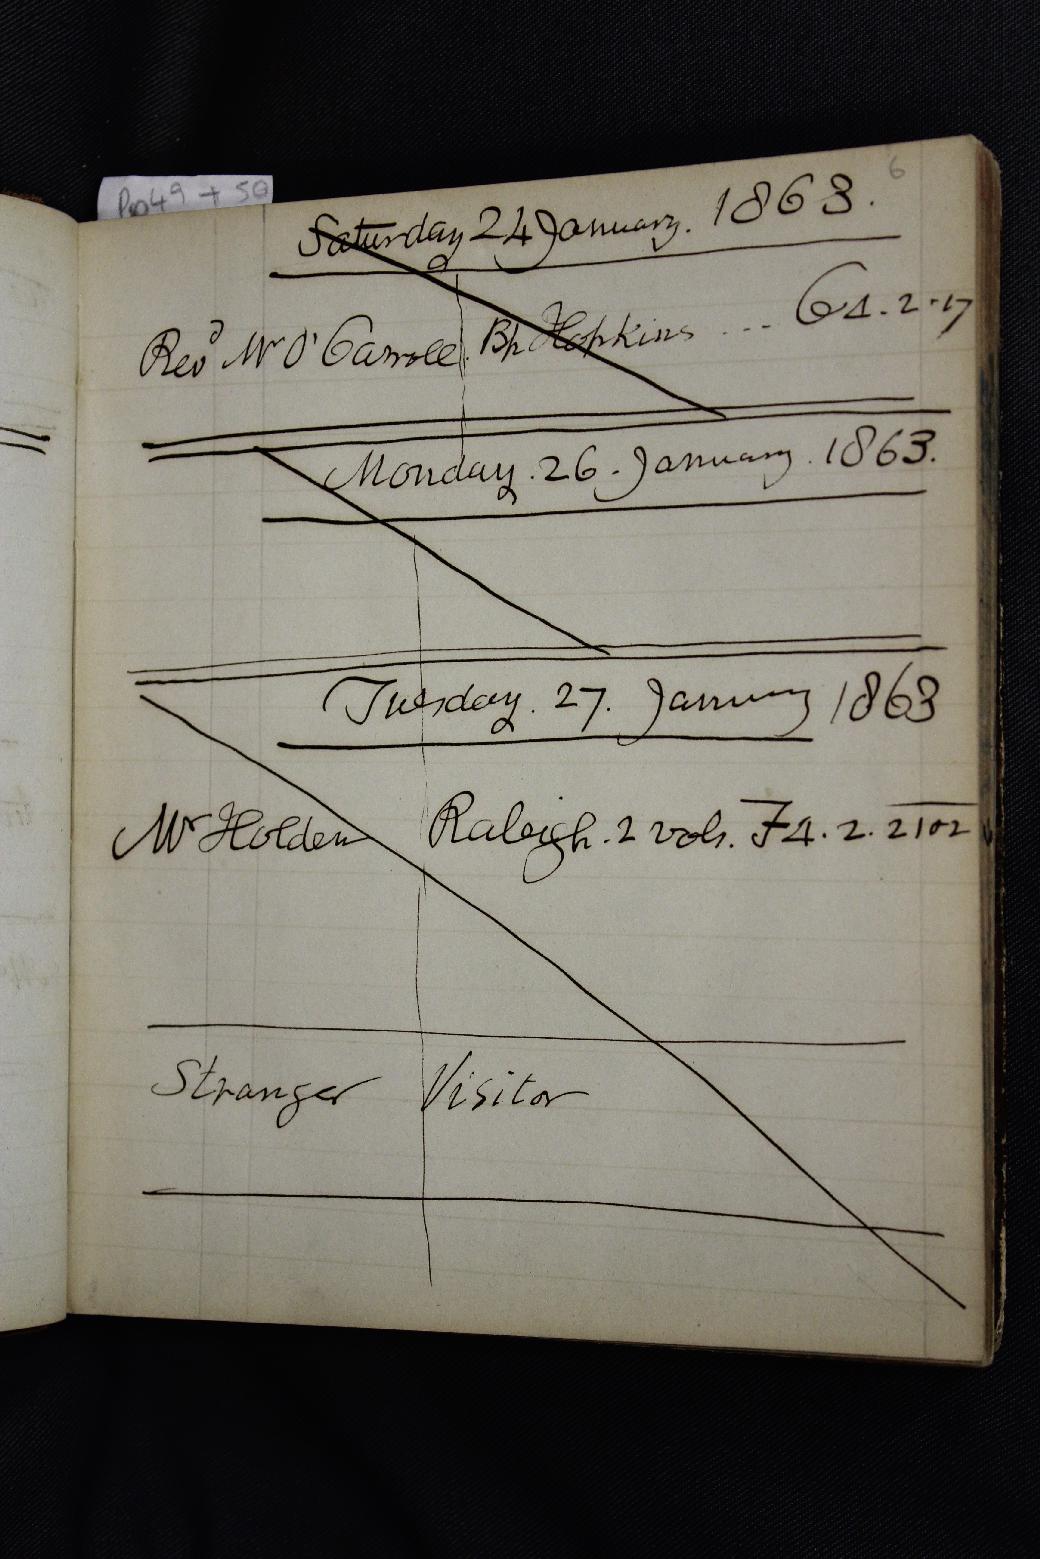 6
Pp 49 + 50
Saturday 24 January. 1863.
Revd Mr O'Carroll. Bp Hopkins ... G4.2.17
Monday. 26. January. 1863.
Tuesday. 27. January 1863
Mr Holden Raleigh. 2 vols. F4.2.
Stranger Visitor